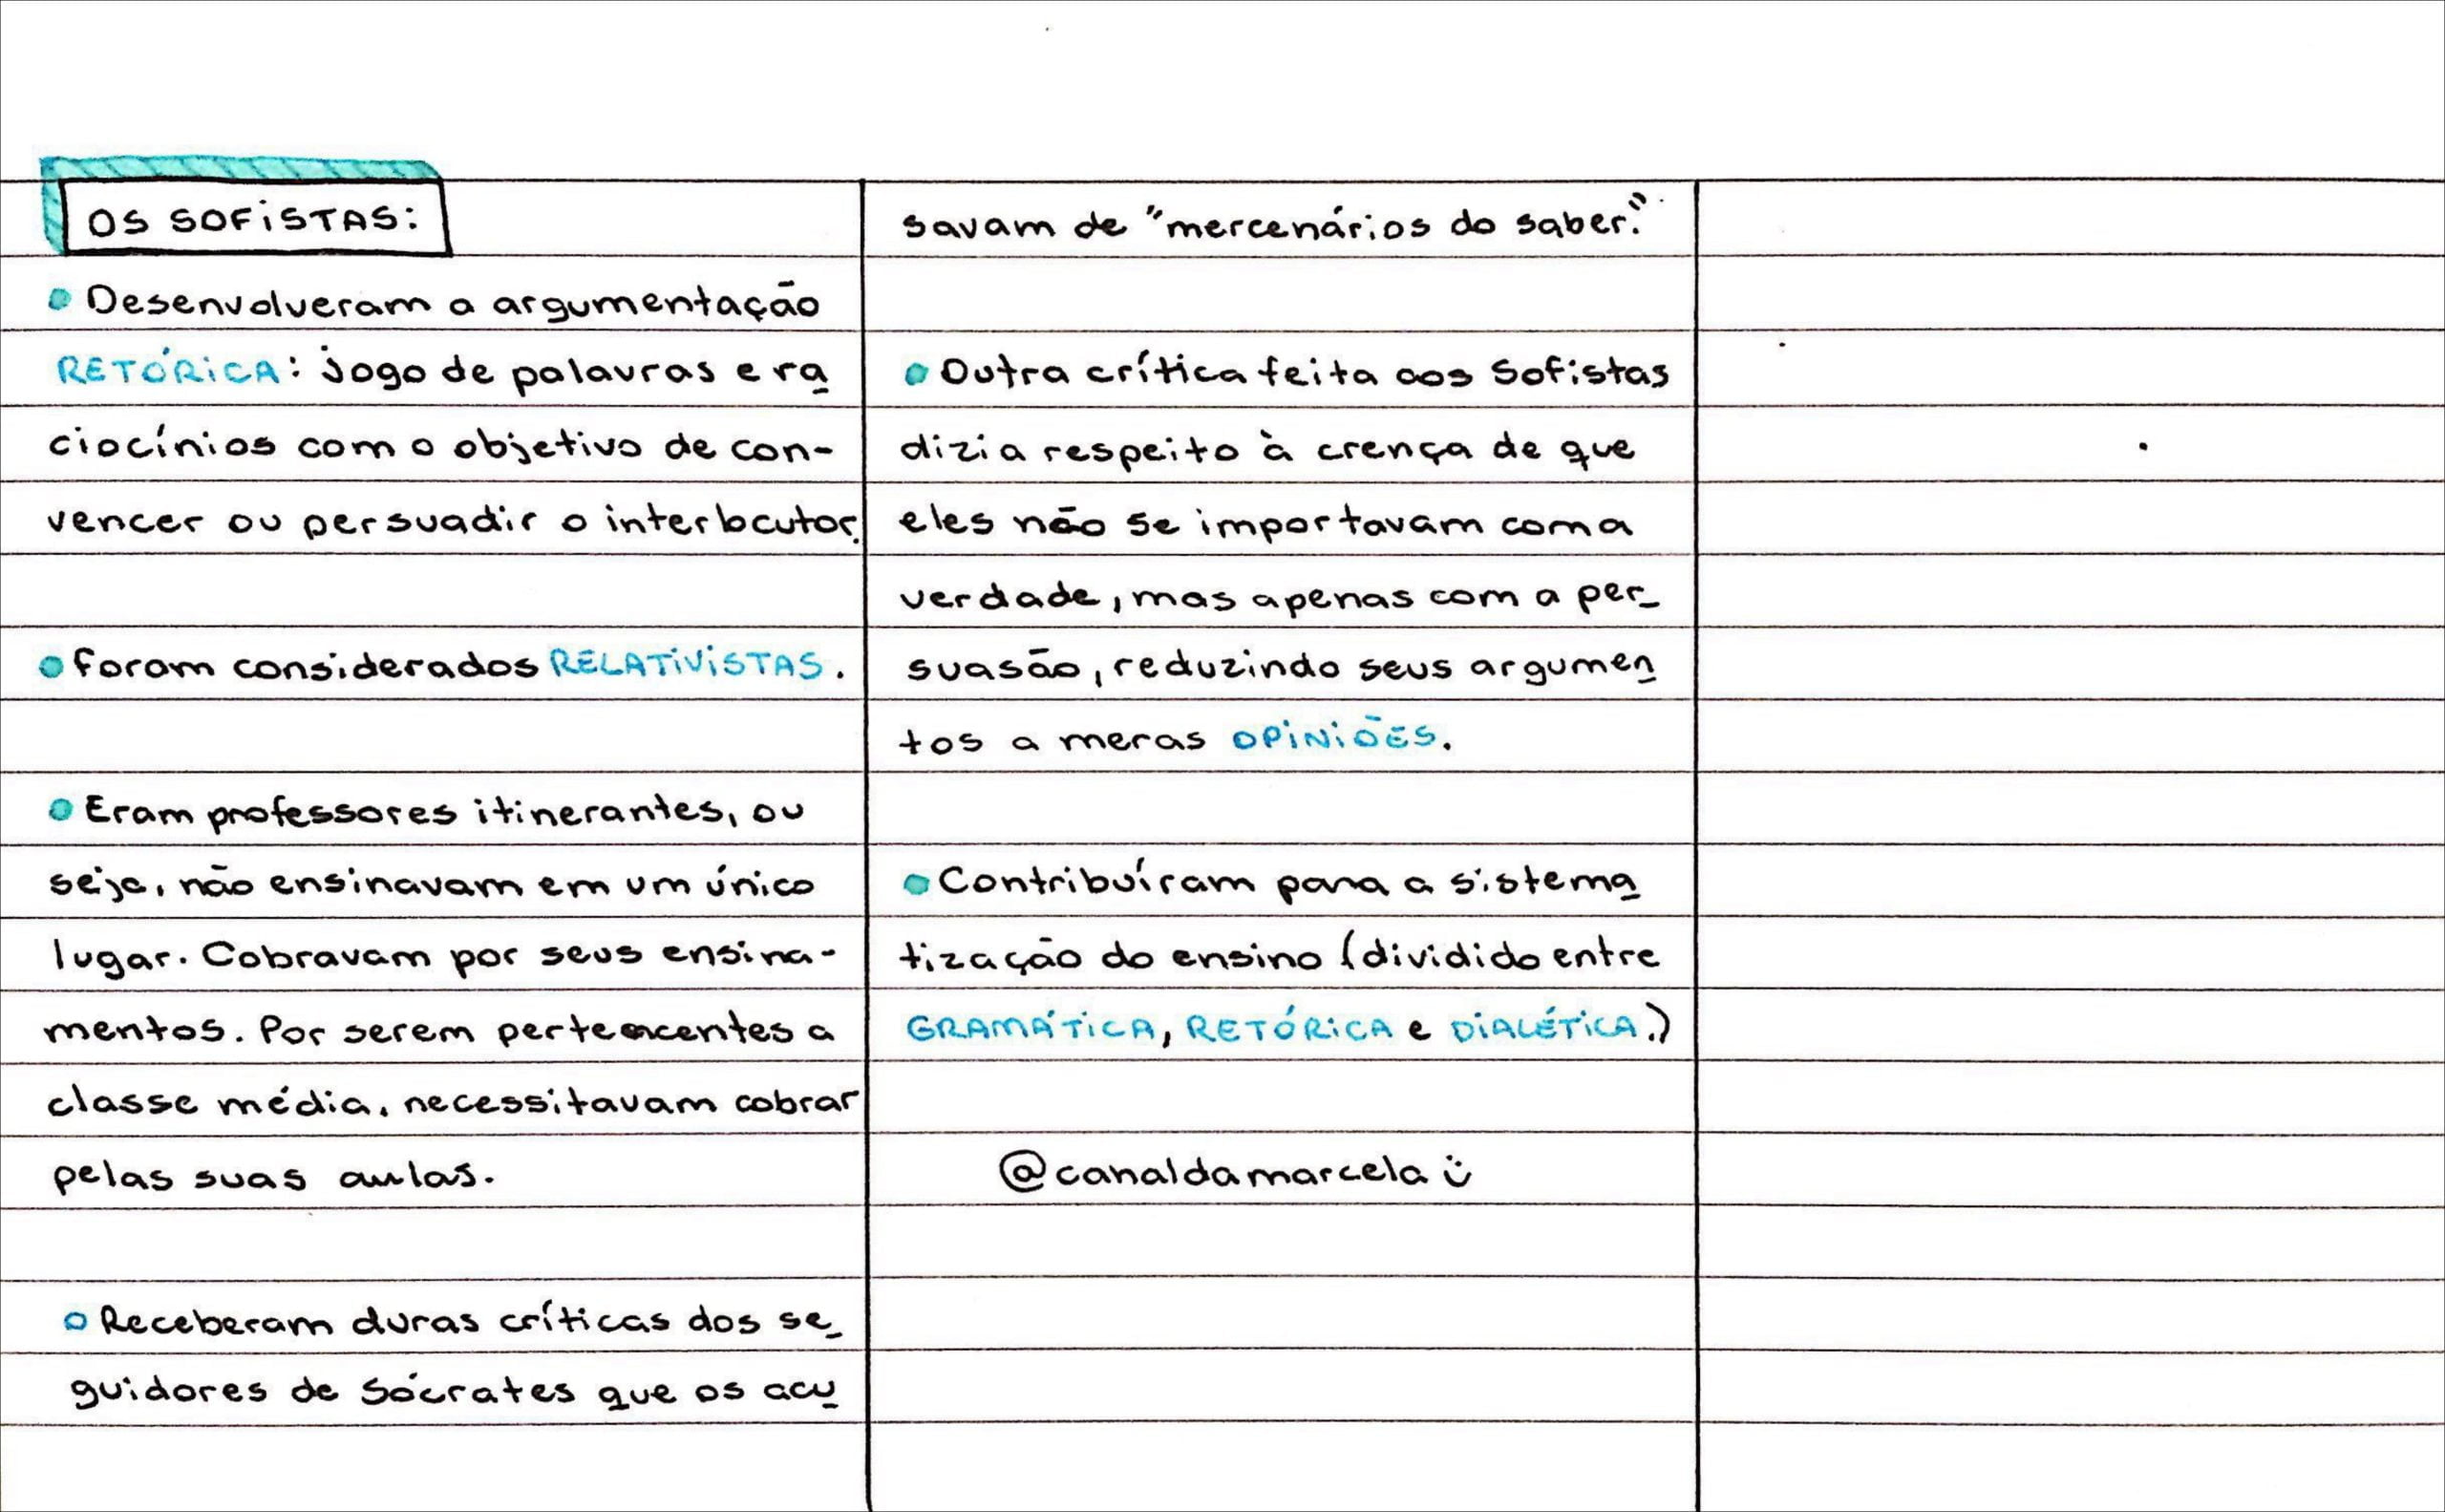 OS SOFiSTAS:
Desenvolveram a argumentação
RETÓRiCA: jogo de palavras e ra
ciocínios com o objetivo de con-
vencer ou persuadir o interlocutor.
Foram considerados RELATiViSTAS.
Eram professores itinerantes, ou
seja, não ensinavam em um único
lugar. Cobravam por seus ensina-
mentos. Por serem pertencentes a
classe média, necessitavam cobrar
pelas suas aulas.
Receberam duras críticas dos se_
guidores de Sócrates que os acu
savam de "mercenários do saber."
Outra crítica feita aos Sofistas
dizia respeito à crença de que
eles não se importavam com a
verdade, mas apenas com a per_
suasão, reduzindo seus argumen
tos a meras OPiNiÕES.
Contribuíram para a sistema
tização do ensino (dividido entre
GRAMÁTiCA, RETÓRiCA e DiALÉTiCA.)
@canaldamarcela